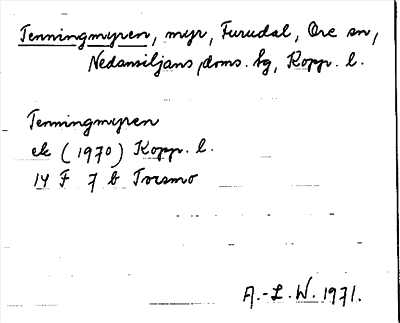 Tenningmyren, myr, Furudal, Ore sn,
Nedansiljans doms. fg, Kopp. l.
Tenningmyren
ek (1970) Kopp. l.
14 F 7 b Torsmo
A.-L. W. 1971.